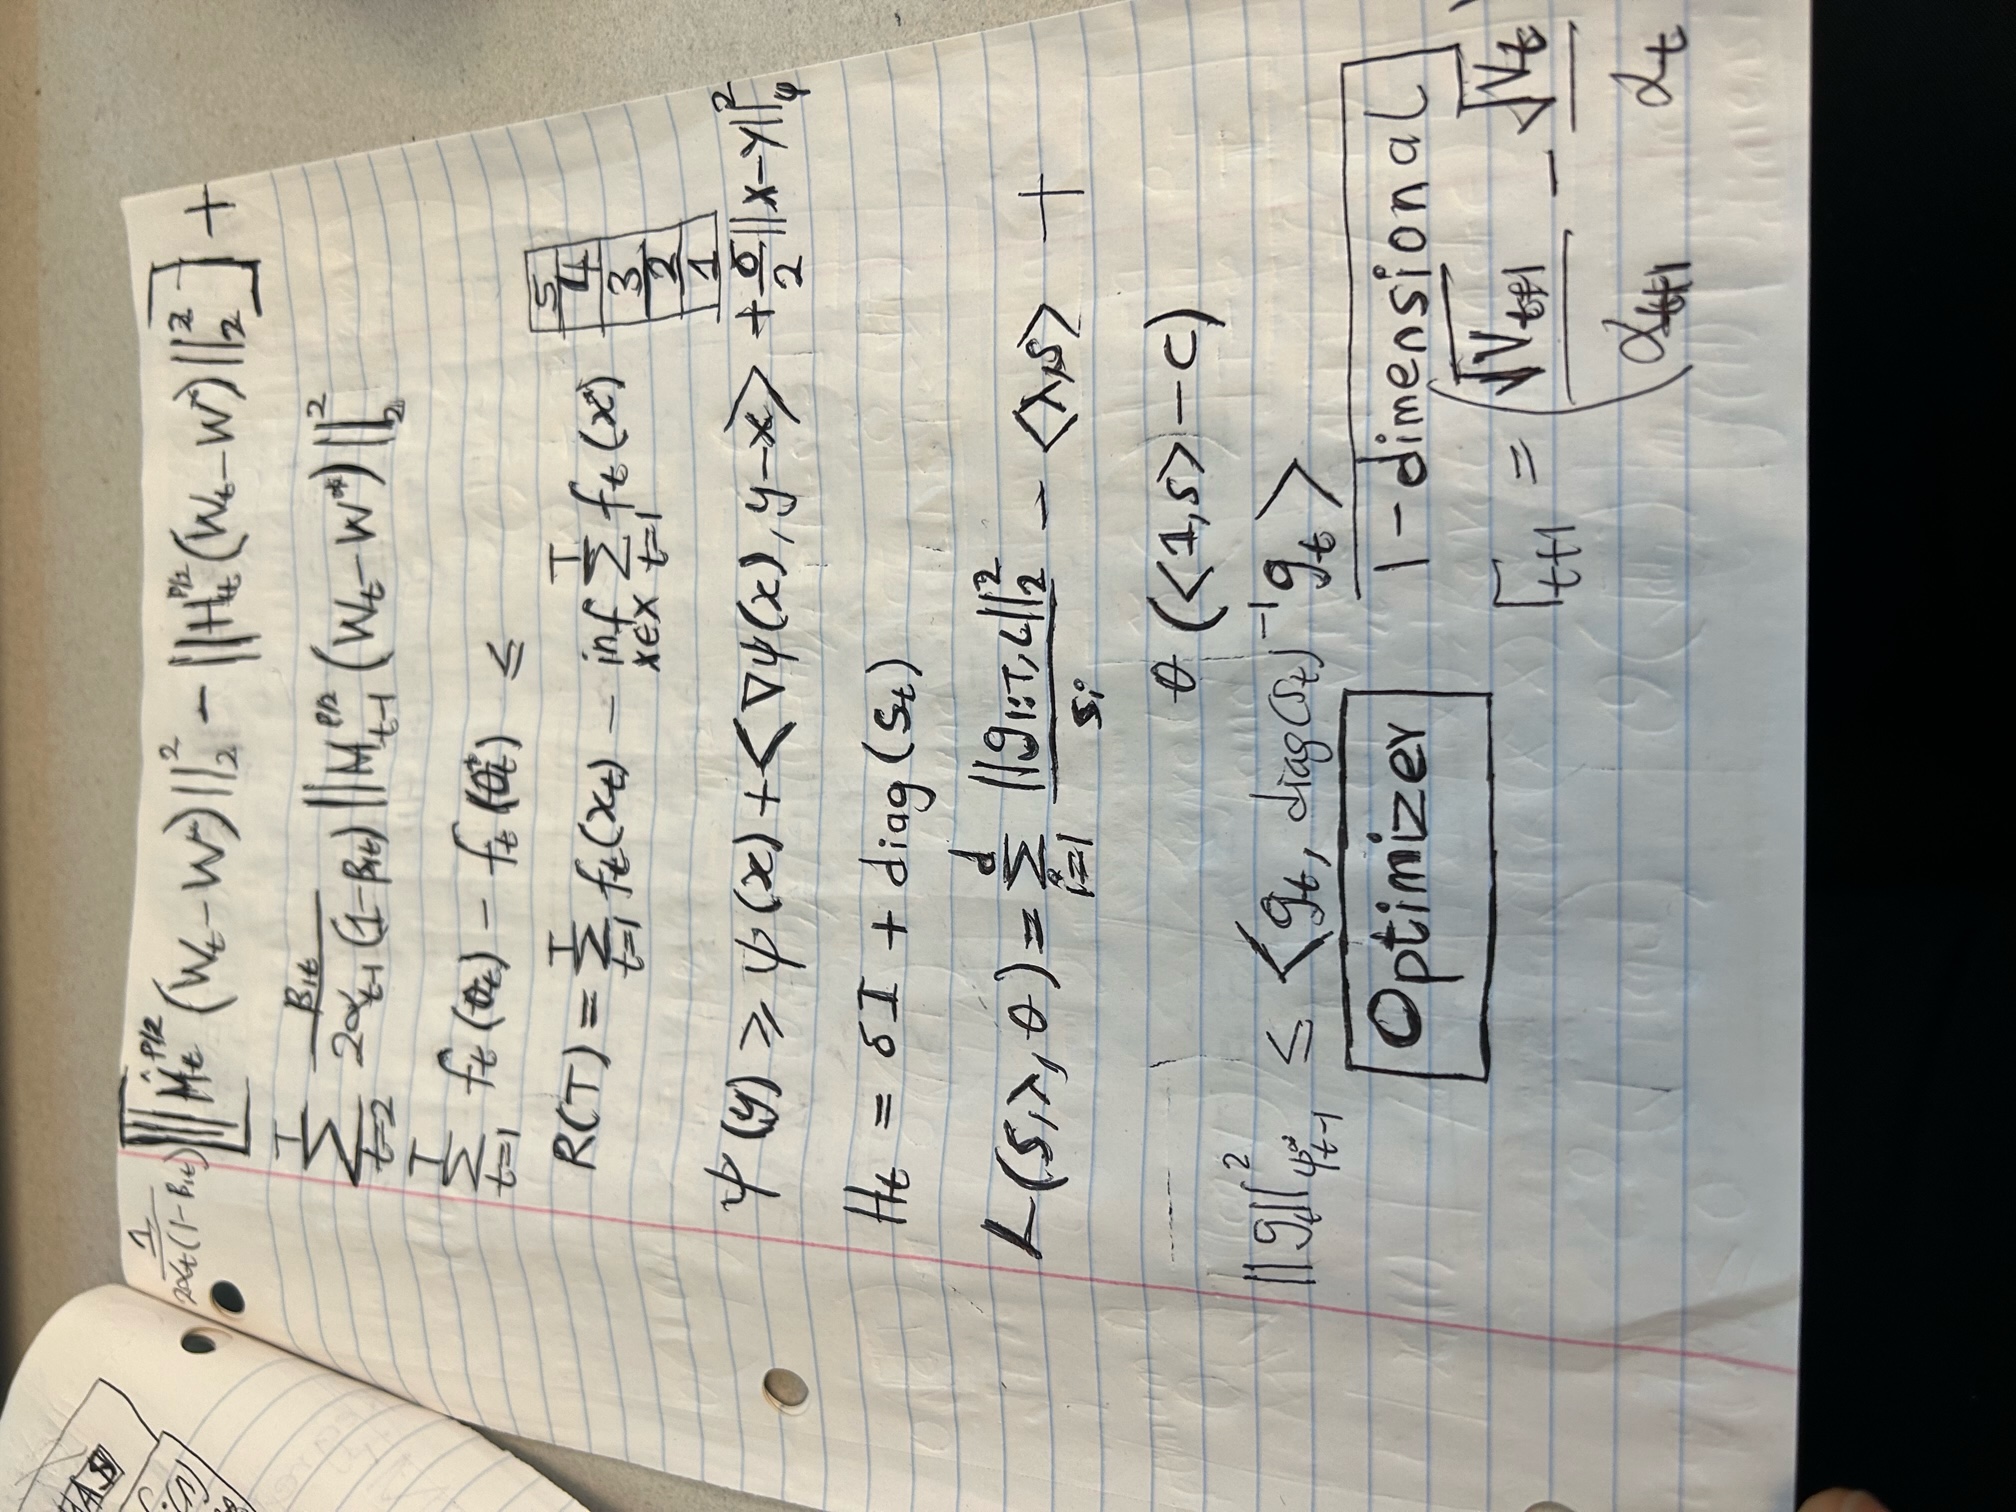 AS
1/(2α_t(1-β_1t)) [|||M̂_t^{P/2} (W_t - W*)||_2^2 - ||H_t^{P/2} (W_t - W*)||_2^2] +
∑_{t=2}^{T} β_1t/(2α_{t-1}(1-β_1t)) ||M_{t-1}^{P/2} (W_t - W*)||_2^2
∑_{t=1}^{T} f_t(θ_t) - f_t(θ_t^*) ≤
R(T) = ∑_{t=1}^{T} f_t(x_t) - inf_{x∈X} ∑_{t=1}^{T} f_t(x*)
5
4
3
2
1
ψ(y) ≥ ψ(x) + <∇ψ(x), y-x> + σ/2 ||x-y||_ψ^2
H_t = δI + diag(s_t)
L(s,λ,θ) = ∑_{i=1}^{d} ||g_{1:T,i}||_2^2 / s_i - <λ,s> +
θ(<1,s> - c)
||g_t||_{ψ_{t-1}^*}^2 ≤ <g_t, diag(s_t)^{-1} g_t>
Optimizer
1-dimensional
Γ_{t+1} = (√V_{t+1}/α_{t+1} - √V_t/α_t